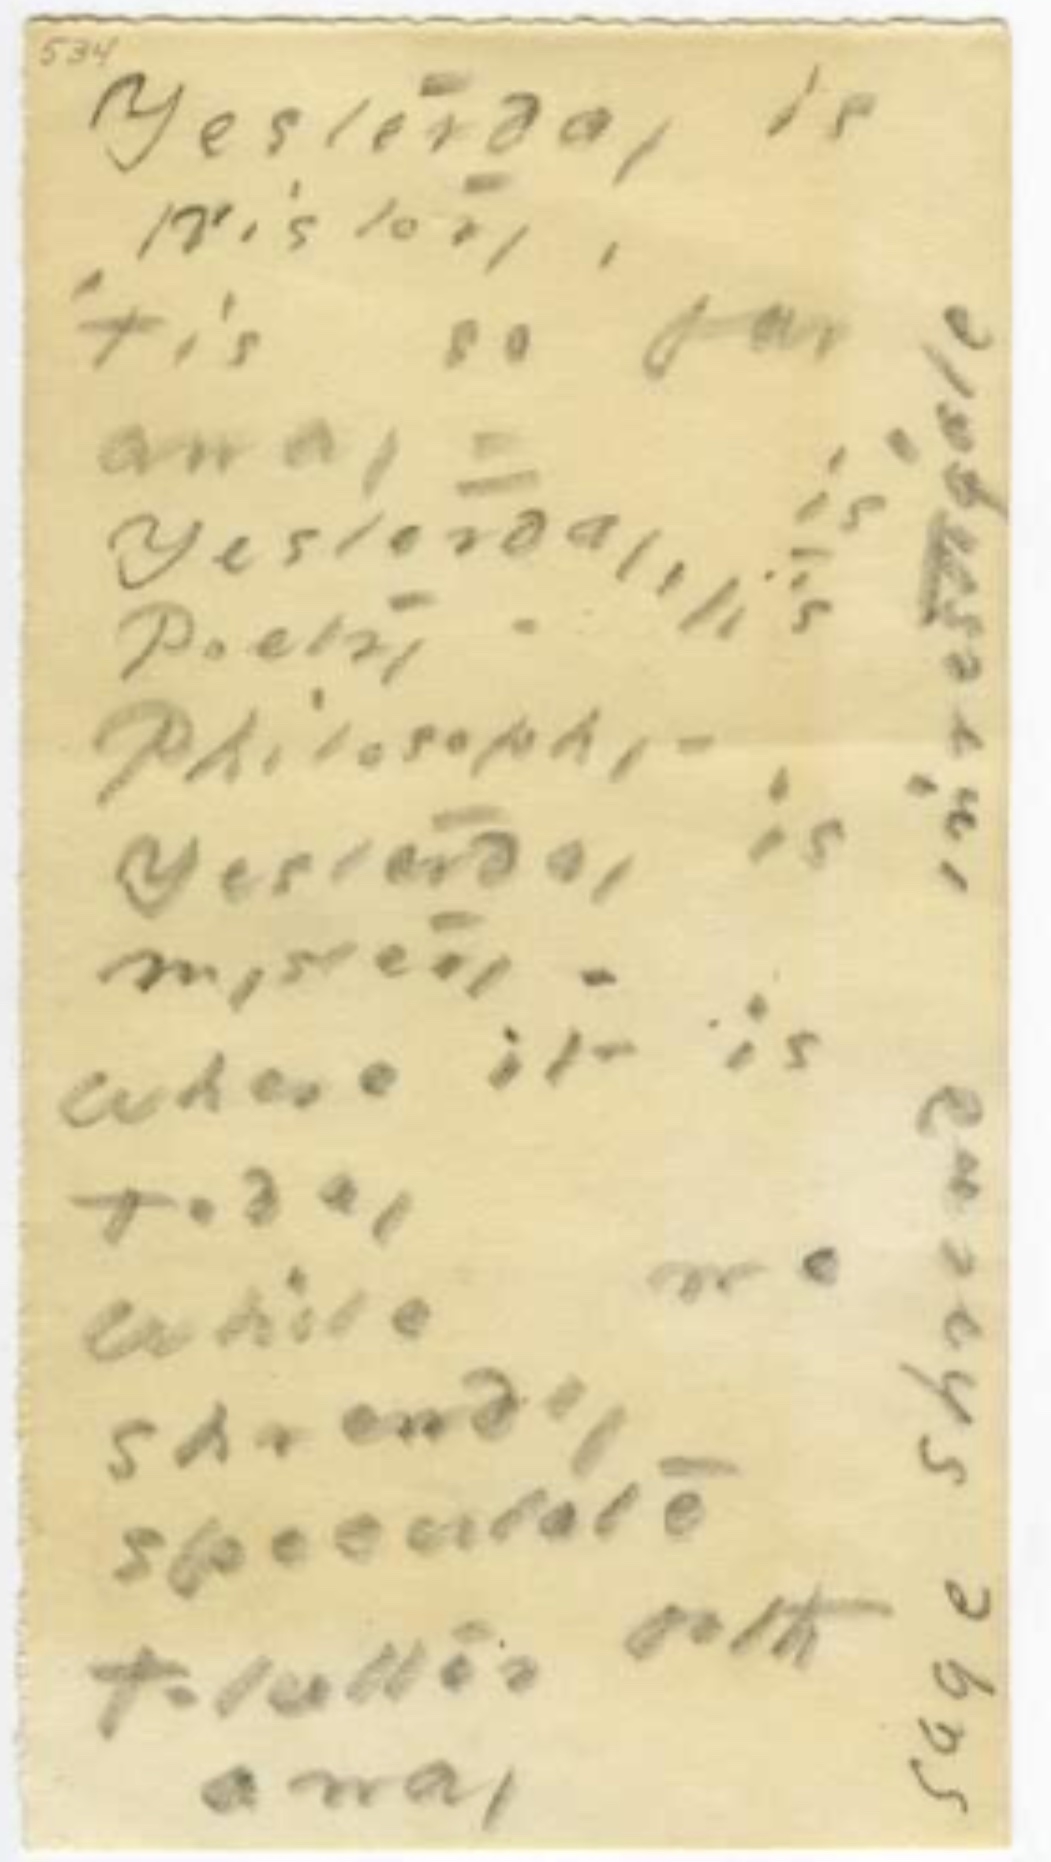 534
Yesterday is
History,
'Tis so far
away –
Yesterday is
Poetry – 'tis
Philosophy –
Yesterday is
mystery –
where it is
Today
while we
shrewdly
speculate
Flutter both
away